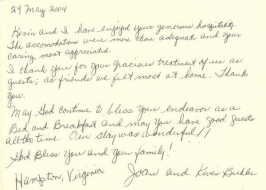 29 May 2004
Kevin and I have enjoyed your generous hospitality.
The accomodations were more than adequate and your
caring most appreciated.
I thank you for your gracious treatment of us as
guests; as friends we felt most at home. Thank
you.
May God continue to bless your endeavor as a
Bed and Breakfast and may you have good guests
all the time. Our stay was wonderful!!
God Bless You and Your family!
Hampton, Virginia Joan and Kevin